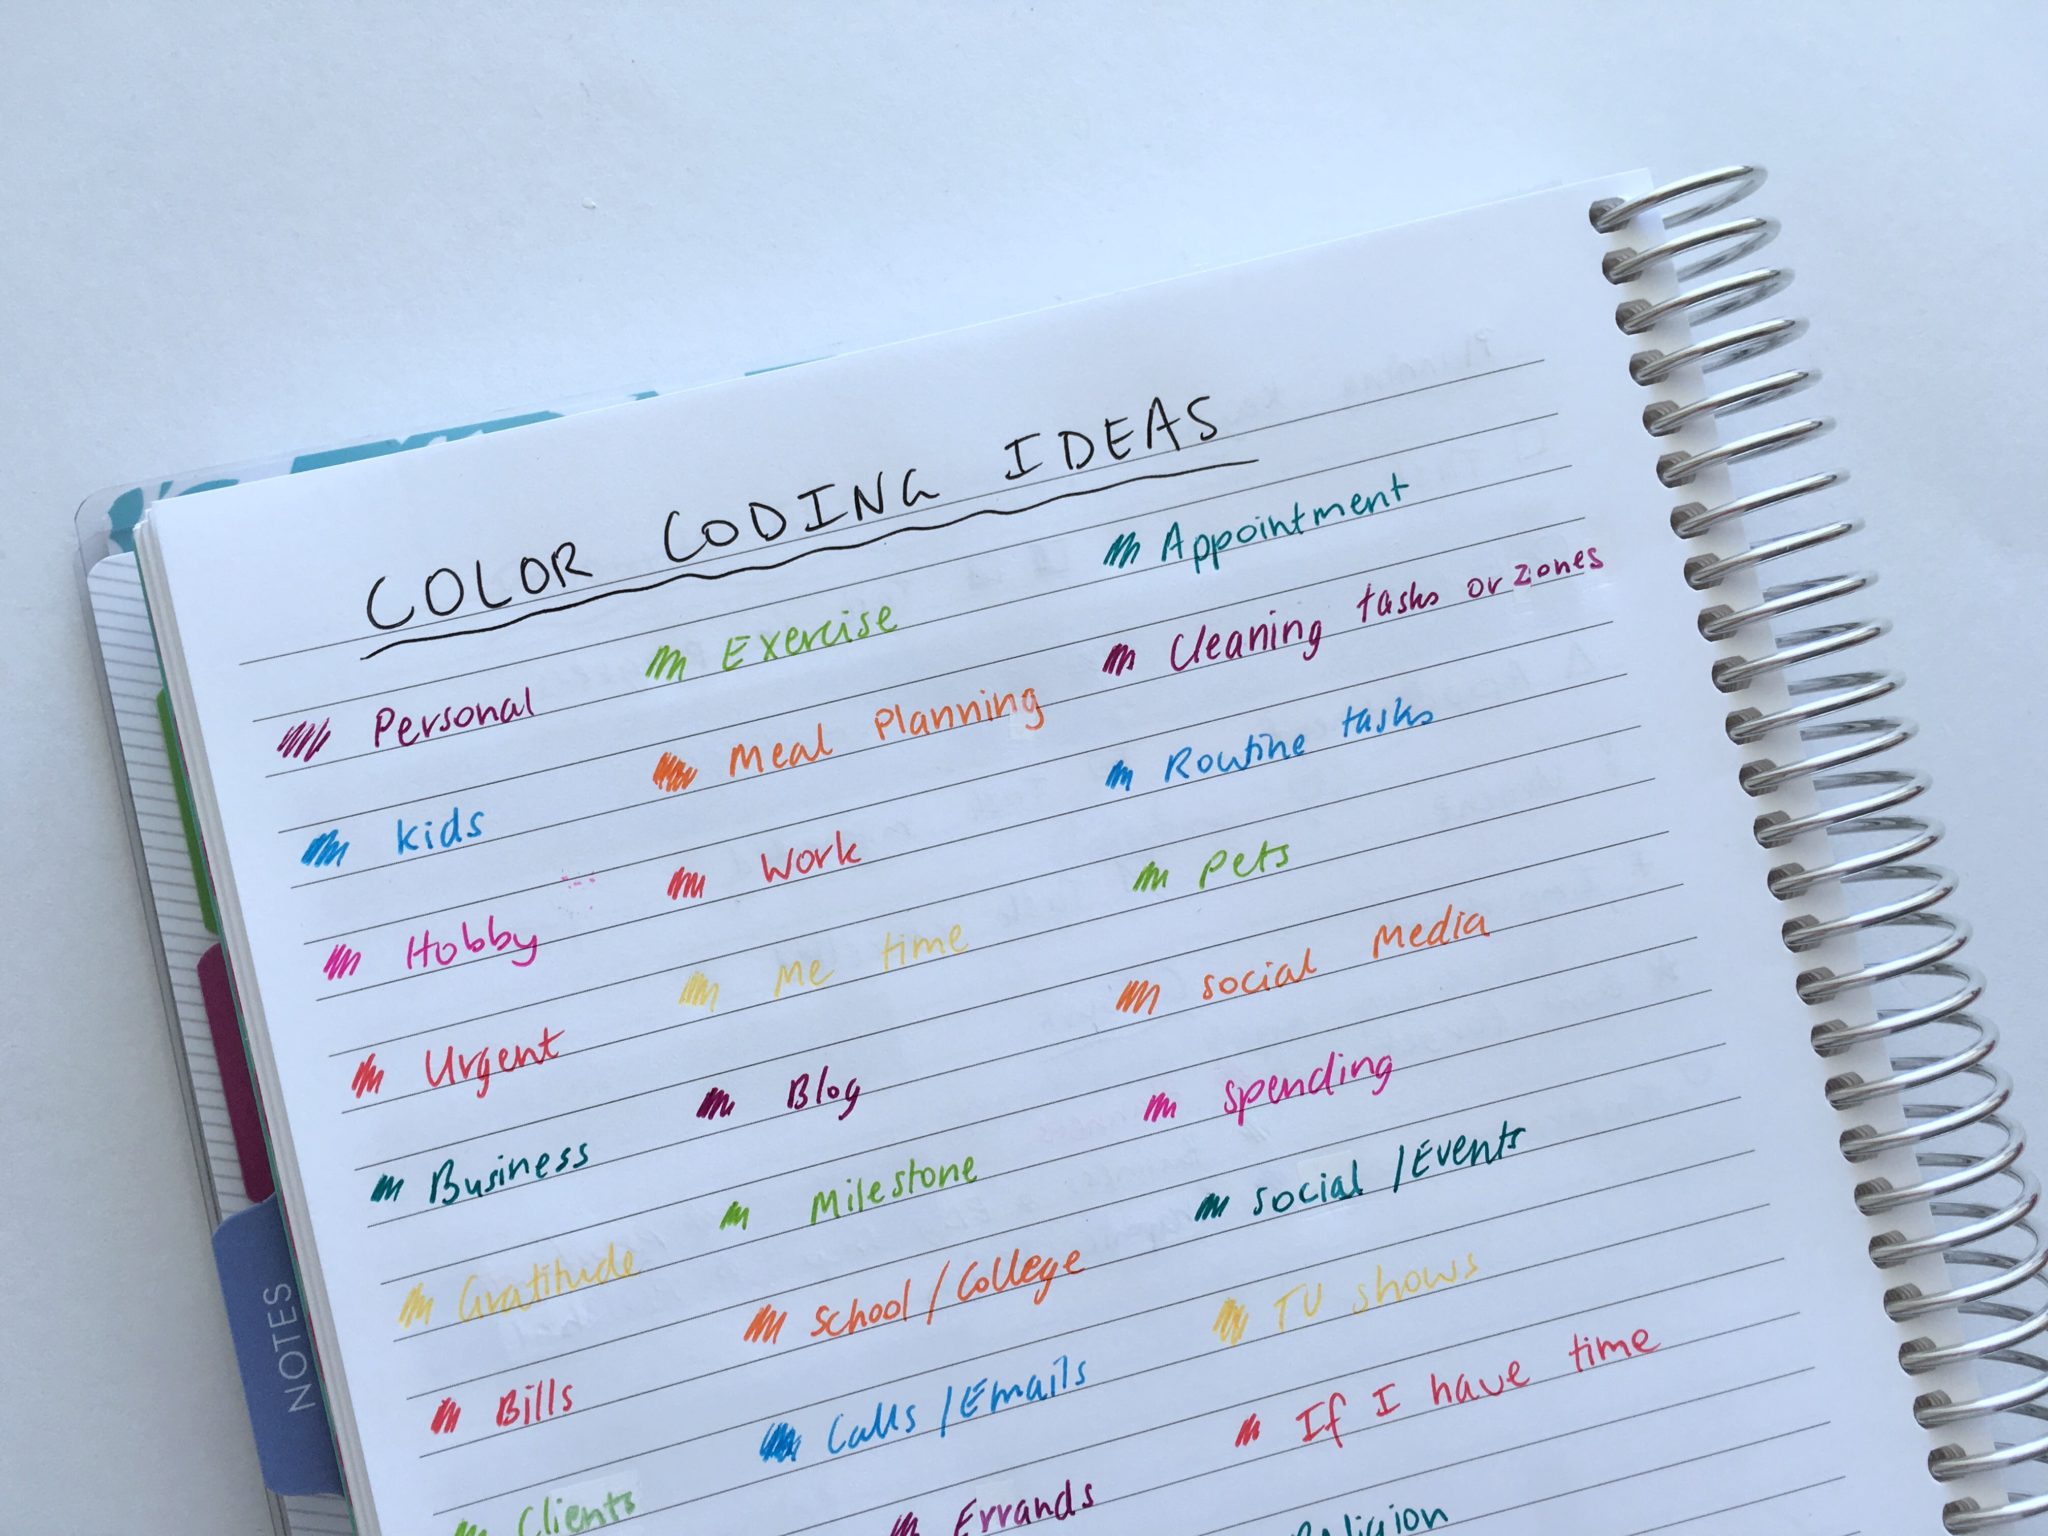 COLOR CODING IDEAS
Personal
Kids
Hobby
Urgent
Business
Gratitude
Bills
Clients
Exercise
Meal Planning
Work
Me time
Blog
Milestone
School / College
Calls / Emails
Errands
Appointment
Cleaning tasks or zones
Routine tasks
Pets
Social Media
Spending
Social / Events
TV shows
If I have time
Religion
NOTES